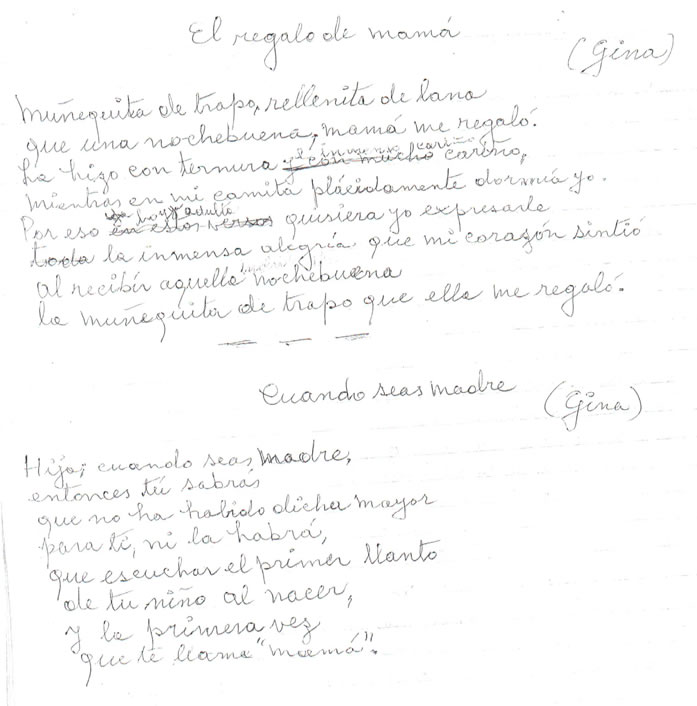 El regalo de mamá
(Gina)
Muñequita de trapo, rellenita de lana
que una nochebuena, mamá me regaló.
La hizo con ternura y con mucho cariño,
mientras en mi camita plácidamente dormía yo.
ya hoy adulta
Por eso en estos versos quisiera yo expresarle
toda la inmensa alegría que mi corazón sintió
al recibir aquella nochebuena
la muñequita de trapo que ella me regaló.
Cuando seas madre
(Gina)
Hija; cuando seas madre,
entonces tú sabrás
que no ha habido dicha mayor
para ti, ni la habrá,
que escuchar el primer llanto
de tu niño al nacer,
y la primera vez
que te llame "mamá".